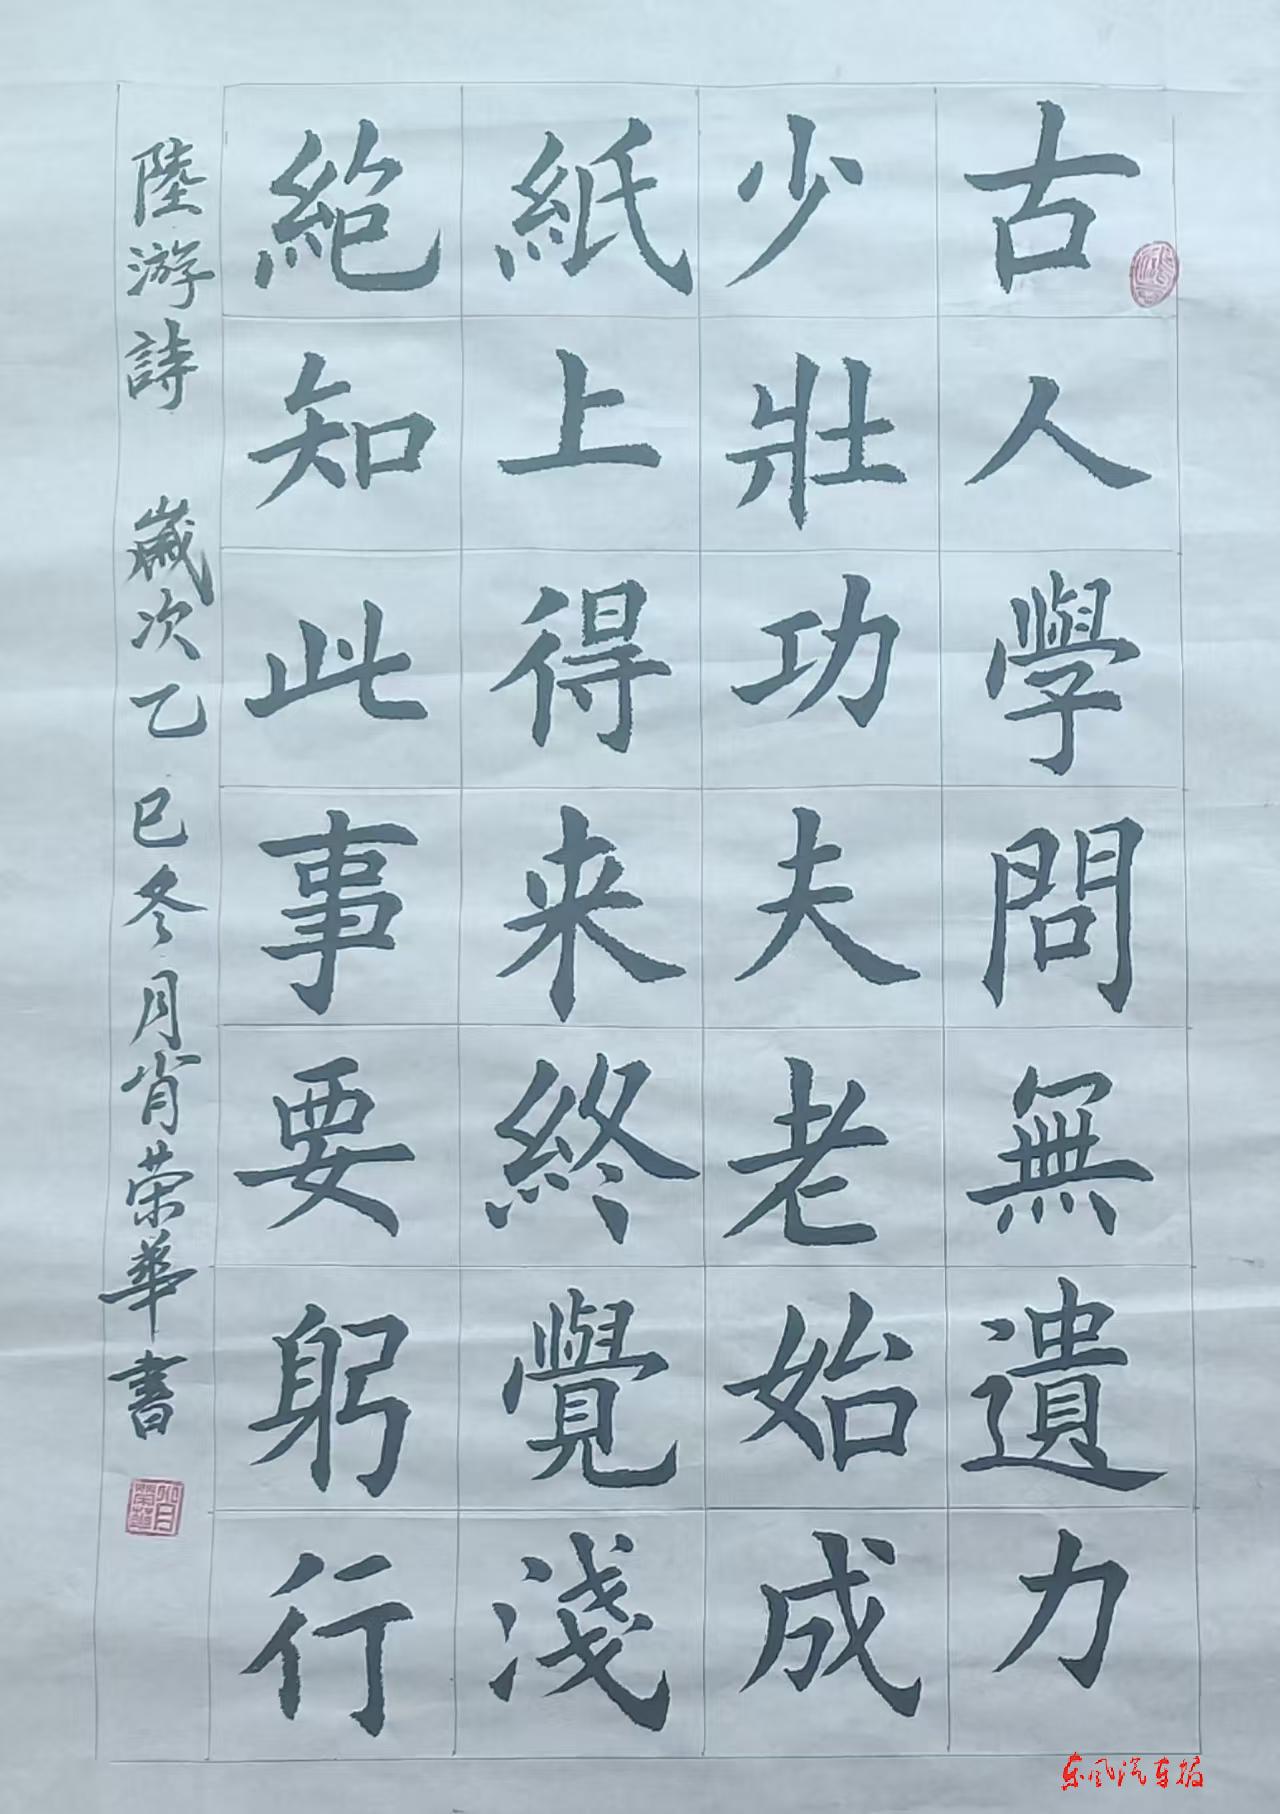 古人學問無遺力
少壯功夫老始成
紙上得来終覺淺
絕知此事要躬行
陸游詩 歲次乙巳冬月肖荣華書
肖荣華
东风汽车报